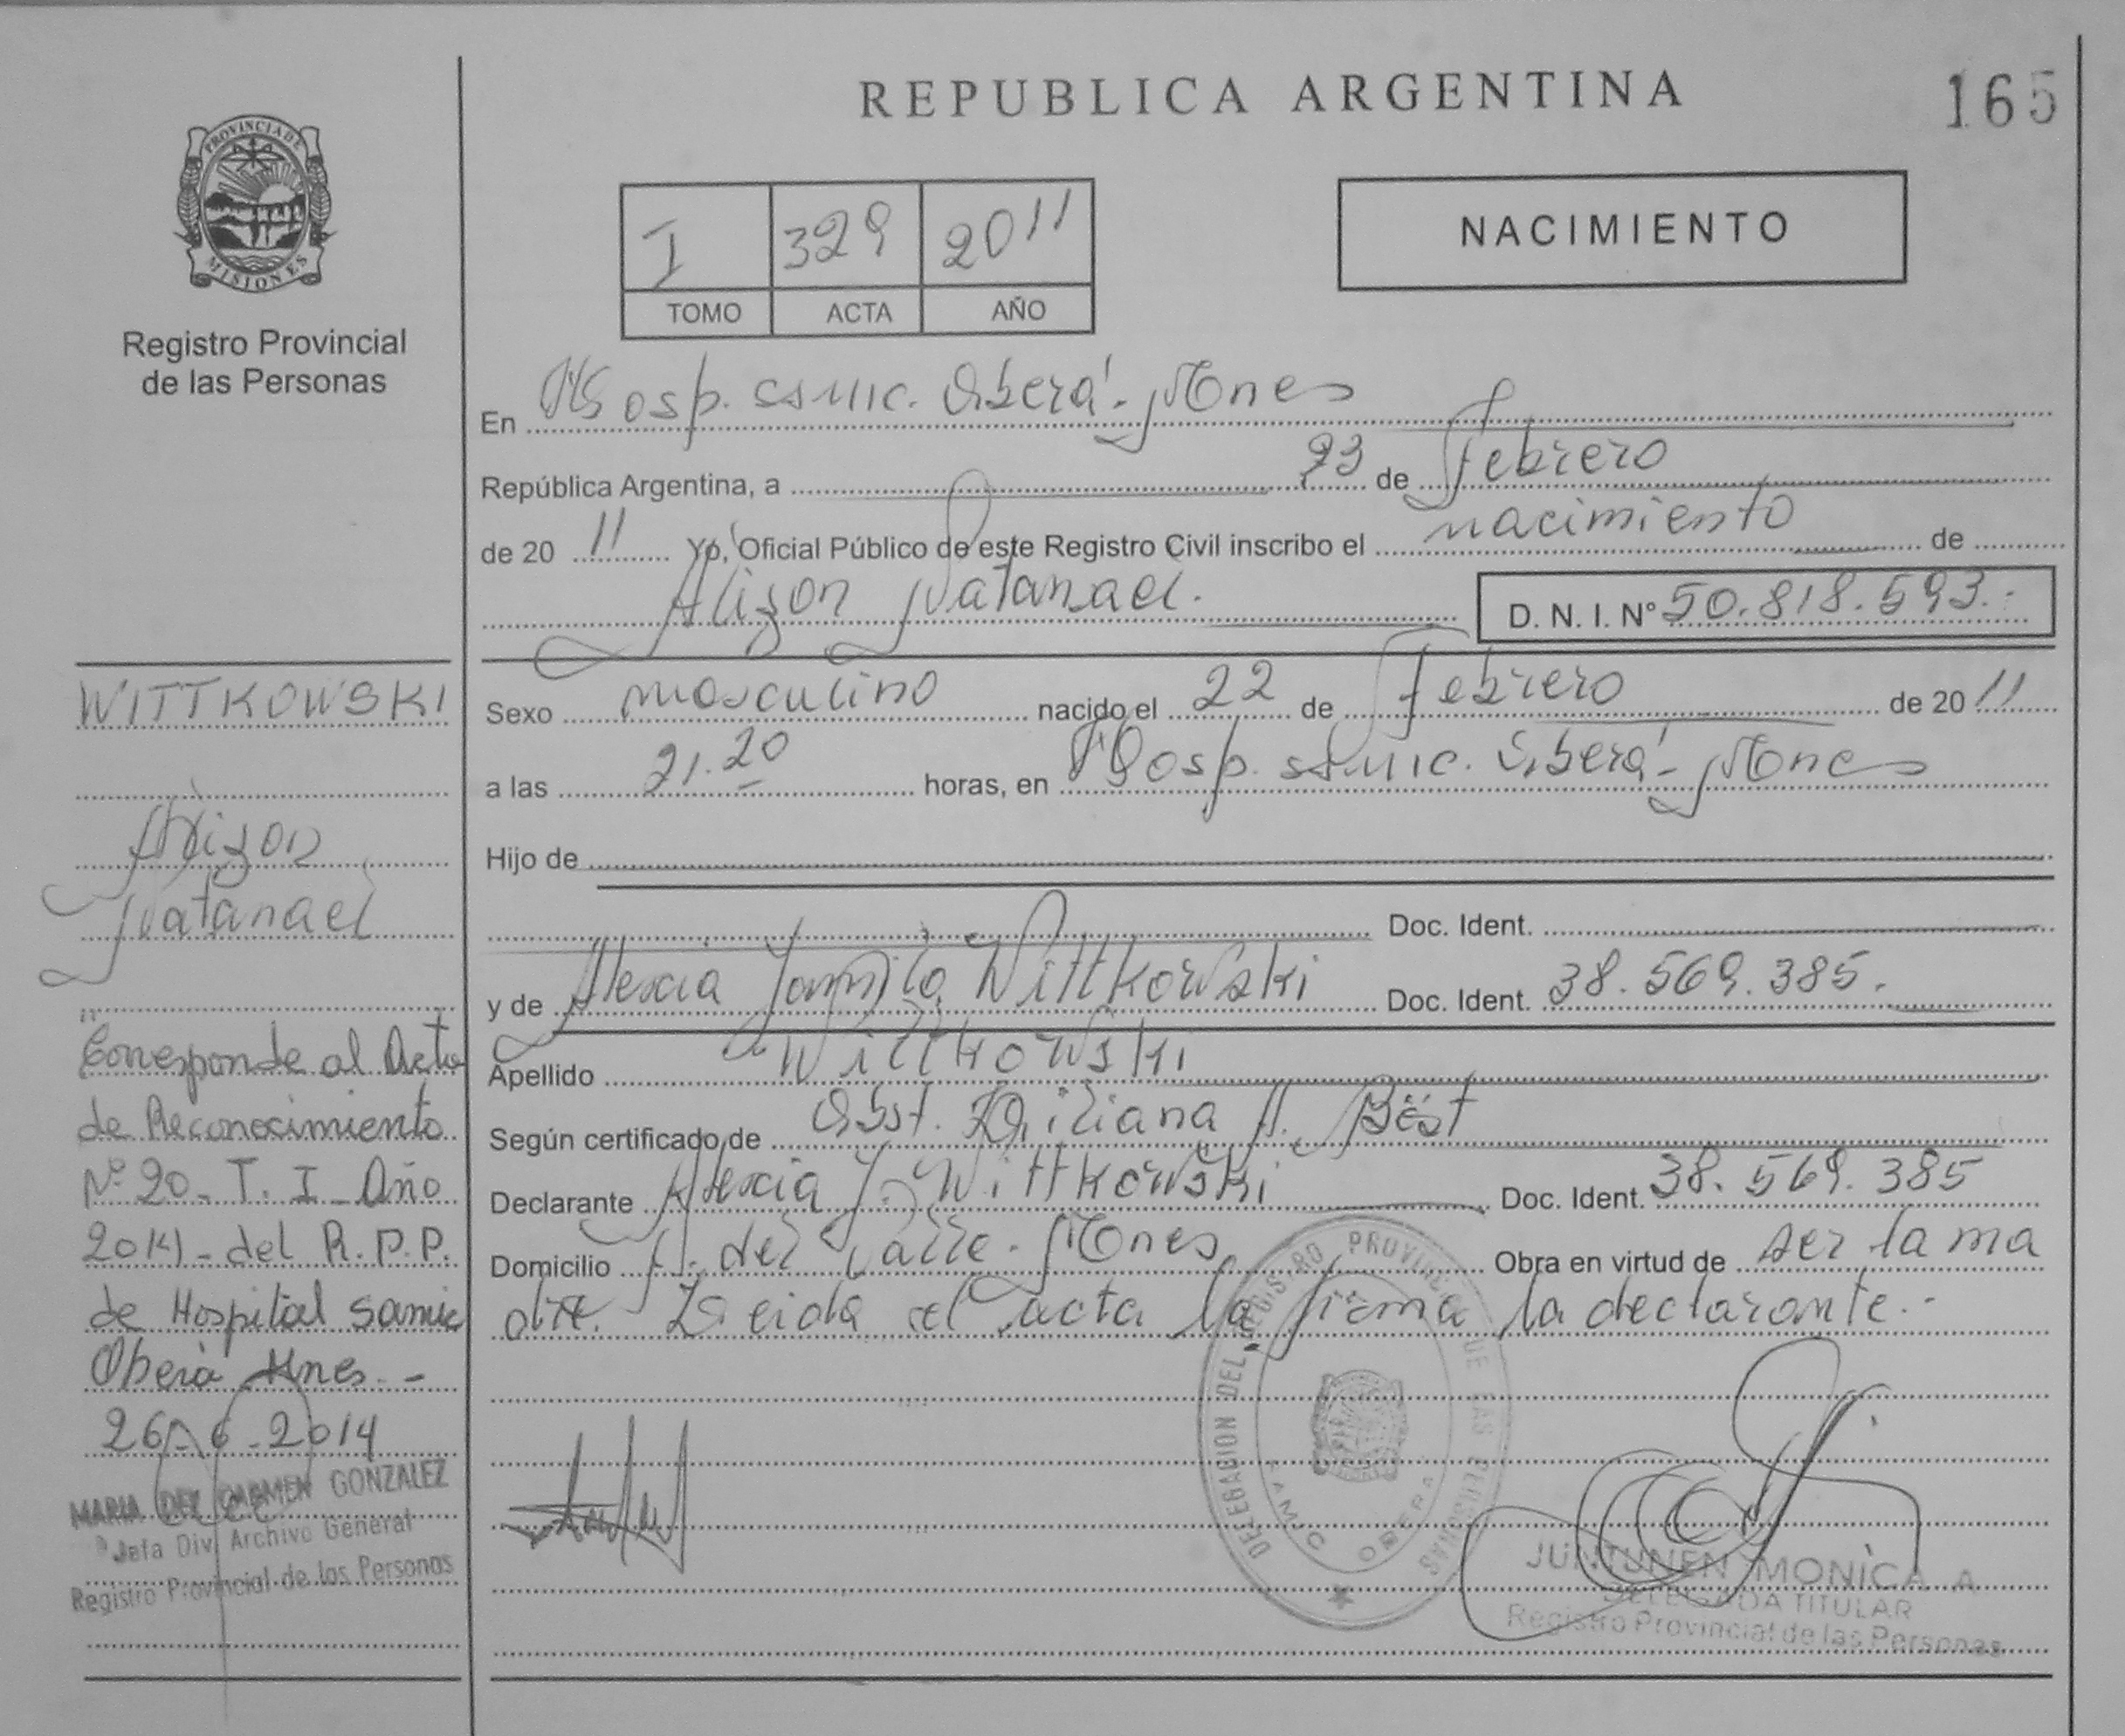 REPUBLICA ARGENTINA
165
PROVINCIA DE
MISIONES
Registro Provincial
de las Personas
I 329 2011
TOMO ACTA AÑO
NACIMIENTO
En Hosp. samic. Oberá - Mnes
República Argentina, a 23 de febrero
de 20 11 Yo, Oficial Público de este Registro Civil inscribo el nacimiento de
Alizon Natanael.
D. N. I. Nº 50.818.593.-
Sexo masculino nacido el 22 de febrero de 20 11
a las 21.20 horas, en Hosp. samic. Oberá - Mnes
Hijo de
Doc. Ident.
y de Alexia Yamila Wittkowski Doc. Ident. 38.569.385.
Apellido Wittkowski
Según certificado de Obst. Liliana Best
Declarante Alexia Y. Wittkowski Doc. Ident. 38.569.385
Domicilio del Valle - Mnes Obra en virtud de ser la ma
dre. Leida el acta la firma la declarante.-
WITTKOWSKI
Alizon
Natanael
Corresponde al Acta
de Reconocimiento
Nº 20 - T. I - Año
2014 - del R.P.P.
de Hospital Samic
Oberá Mnes. -
26 - 6 - 2014
MARIA DEL CARMEN GONZALEZ
Jefa Div. Archivo General
Registro Provincial de las Personas
DELEGACION DEL REGISTRO PROVINCIAL DE LAS PERSONAS
SAMIC OBERA
JUNTUNEN MONICA A.
DELEGADA TITULAR
Registro Provincial de las Personas